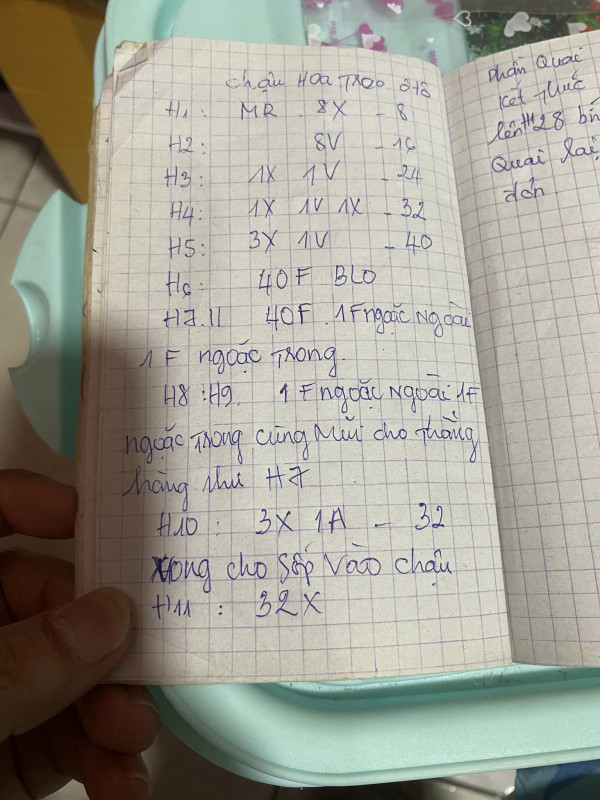 chậu Hoa Treo ôtô
H1: MR. 8X - 8
H2: 8V - 16
H3: 1X 1V - 24
H4: 1X 1V 1X - 32
H5: 3X 1V - 40
H6: 40F BLO
H7.11 40F. 1F ngoặc Ngoài
1F ngoặc Trong.
H8:H9. 1F ngoặc Ngoài 1F
ngoặc Trong cùng Mũi cho Thẳng
hàng như H7
H10: 3X 1A - 32
xong cho Sếp Vào chậu
H11: 32X
phần Quai
Kết Thúc
lên 28 bn
Quai lại